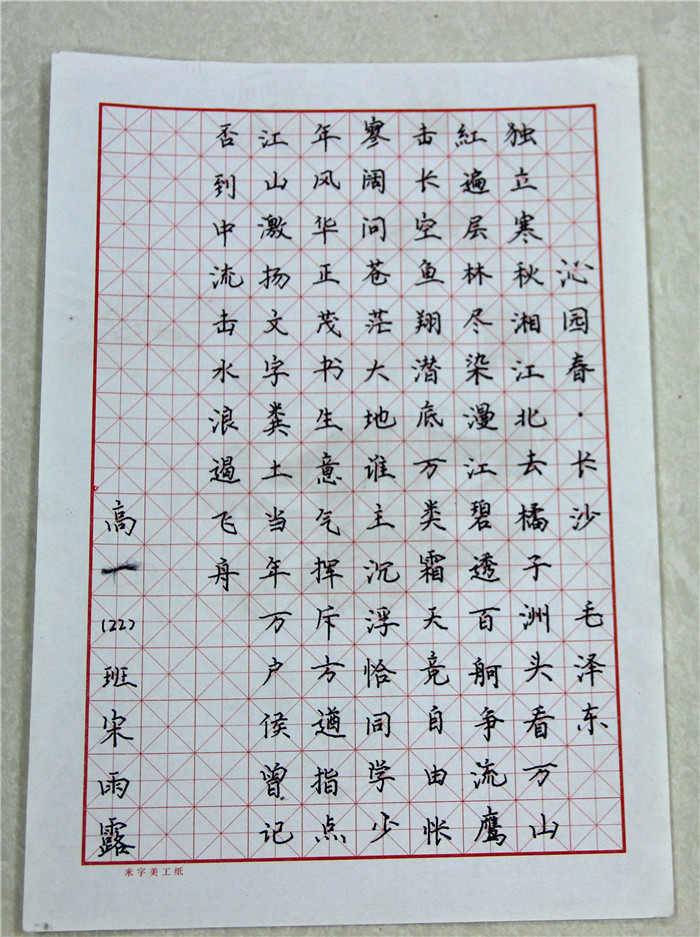 沁园春·长沙 毛泽东
独立寒秋湘江北去橘子洲头看万山
紅遍层林尽染漫江碧透百舸争流鹰
击长空鱼翔潜底万类霜天竞自由怅
寥阔问苍茫大地谁主沉浮恰同学少
年风华正茂书生意气挥斥方遒指点
江山激扬文字粪土当年万户侯曾记
否到中流击水浪遏飞舟
高一(22)班宋雨露
米字美工纸